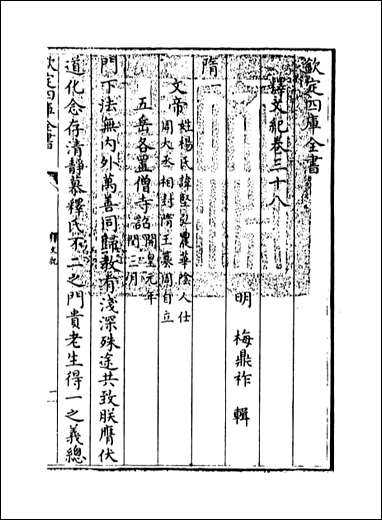 欽定四庫全書
釋文紀卷三十八
明 梅鼎祚 輯
隋
文帝
姓楊氏諱堅弘農華陰人仕
周大丞相封隋王篡周自立
五岳各置僧寺詔
開皇元年
閏三月
門下法無内外萬善同歸教有淺深殊途共致朕膺伏
道化念存清靜慕釋氏不二之門貴老生得一之義總
欽定四庫全書
釋文紀
一